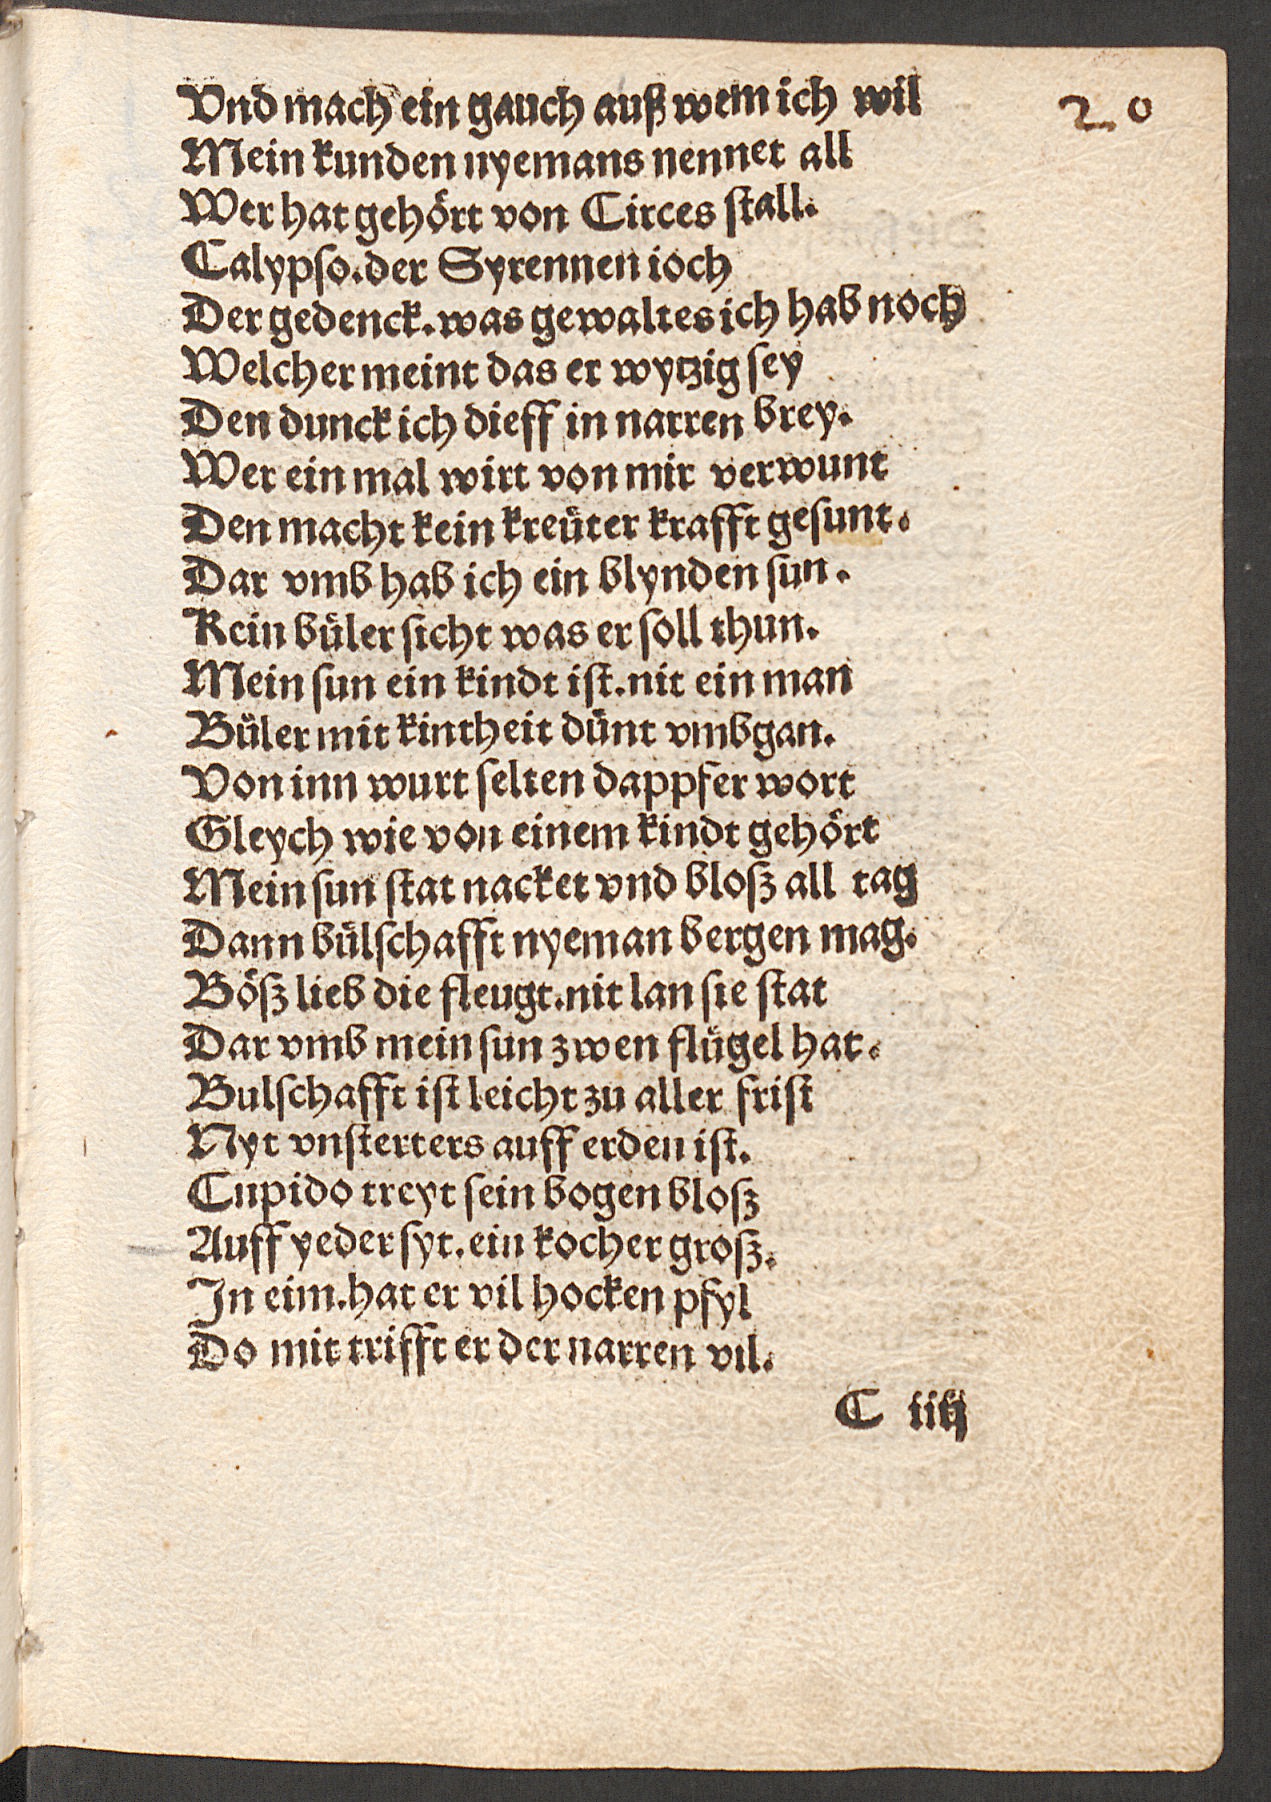 20
Vnd mach ein gauch auß wem ich wil
Mein kunden nyemans nennet all
Wer hat gehört von Circes ſtall.
Calypſo. der Syrennen ioch
Der gedenck. was gewaltes ich hab noch
Welcher meint das er wytzig ſey
Den dunck ich dieff in narren brey.
Wer ein mal wirt von mir verwunt
Den macht kein kreüter krafft geſunt.
Dar vmb hab ich ein blynden ſun.
Kein büler ſicht was er ſoll thun.
Mein ſun ein kindt iſt. nit ein man
Büler mit kintheit dünt vmbgan.
Von inn wurt ſelten dappfer wort
Gleych wie von einem kindt gehört
Mein ſun ſtat nacket vnd bloß all tag
Dann bülſchafft nyeman bergen mag.
Böß lieb die fleugt. nit lan ſie ſtat
Dar vmb mein ſun zwen flügel hat.
Bulſchafft iſt leicht zu aller friſt
Nyt vnſterters auff erden iſt.
Cupido treyt ſein bogen bloß
Auff yeder ſyt. ein kocher groß.
In eim. hat er vil hocken pfyl
Do mit trifft er der narren vil.
C iiij